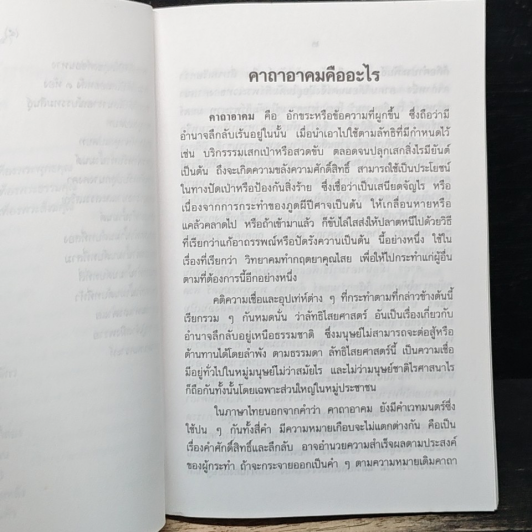 คาถาอาคมคืออะไร
คาถาอาคม คือ อักขระหรือข้อความที่ผูกขึ้น ซึ่งถือว่ามี
อำนาจลึกลับเร้นอยู่ในนั้น เมื่อนำเอาไปใช้ตามลัทธิที่มีกำหนดไว้
เช่น บริกรรมเสกเป่าหรือสวดขับ ตลอดจนปลุกเสกสิ่งไรมียันต์
เป็นต้น ถึงจะเกิดความขลังความศักดิ์สิทธิ์ สามารถใช้เป็นประโยชน์
ในทางปัดเป่าหรือป้องกันสิ่งร้าย ซึ่งเชื่อว่าเป็นเสนียดจัญไร หรือ
เนื่องจากการกระทำของภูตผีปีศาจเป็นต้น ให้เกลื่อนหายหรือ
แคล้วคลาดไป หรือถ้าเข้ามาแล้ว ก็ขับไล่ไสส่งให้ปลาตหนีไปด้วยวิธี
ที่เรียกว่าแก้อาถรรพณ์หรือปัดรังควานเป็นต้น นี้อย่างหนึ่ง ใช้ใน
เรื่องที่เรียกว่า วิทยาคมทำกฤตยาคุณไสย เพื่อให้ไปกระทำแก่ผู้อื่น
ตามที่ต้องการนี้อีกอย่างหนึ่ง
คติความเชื่อและอุปเท่ห์ต่าง ๆ ที่กระทำตามที่กล่าวข้างต้นนี้
เรียกรวม ๆ กันหมดนั่น ว่าลัทธิไสยศาสตร์ อันเป็นเรื่องเกี่ยวกับ
อำนาจลึกลับอยู่เหนือธรรมชาติ ซึ่งมนุษย์ไม่สามารถจะต่อสู้หรือ
ต้านทานได้โดยลำพัง ตามธรรมดา ลัทธิไสยศาสตร์นี้ เป็นความเชื่อ
มีอยู่ทั่วไปในหมู่มนุษย์ไม่ว่าสมัยไร และไม่ว่ามนุษย์ชาติไรศาสนาไร
ก็ถือกันทั้งนั้นโดยเฉพาะส่วนใหญ่ในหมู่ประชาชน
ในภาษาไทยนอกจากคำว่า คาถาอาคม ยังมีคำเวทมนตร์ซึ่ง
ใช้ปน ๆ กันทั้งสี่คำ มีความหมายเกือบจะไม่แตกต่างกัน คือเป็น
เรื่องคำศักดิ์สิทธิ์และลึกลับ อาจอำนวยความสำเร็จผลตามประสงค์
ของผู้กระทำ ถ้าจะกระจายออกเป็นคำ ๆ ตามความหมายเดิมคาถา